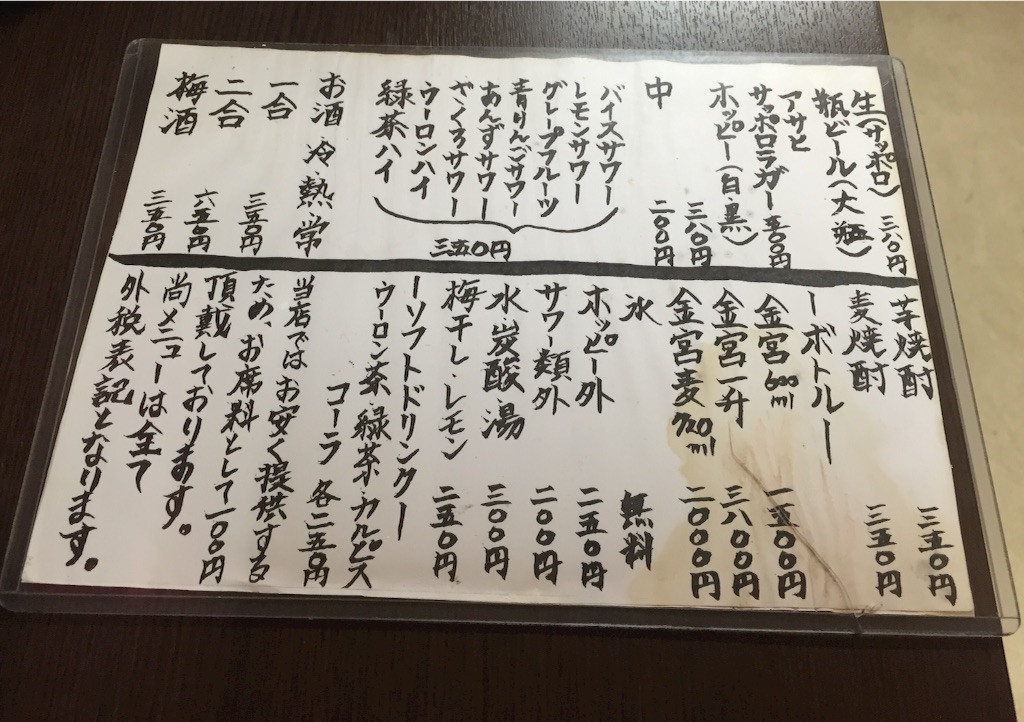 生(サッポロ) 三八〇円
瓶ビール(大瓶)
アサヒ
サッポロラガー 五〇〇円
ホッピー(白 黒) 三八〇円
中 二〇〇円
バイスサワー
レモンサワー
グレープフルーツ
青りんごサワー
あんずサワー
ざくろサワー
ウーロンハイ
緑茶ハイ
三五〇円
お酒 冷 熱 常
一合 三五〇円
二合 六五〇円
梅酒 三五〇円
芋焼酎 三五〇円
麦焼酎 三五〇円
ーボトルー
金宮600ml 一五〇〇円
金宮一升 三八〇〇円
金宮麦720ml 二〇〇〇円
氷 無料
ホッピー外 二五〇円
サワー類外 二〇〇円
水 炭酸 湯 三〇〇円
梅干し・レモン 二五〇円
ーソフトドリンクー
ウーロン茶 緑茶・カルピス
コーラ 各二五〇円
当店ではお安く提供する
ため、お席料として一〇〇円
頂戴しております。
尚メニューは全て
外税表記となります。